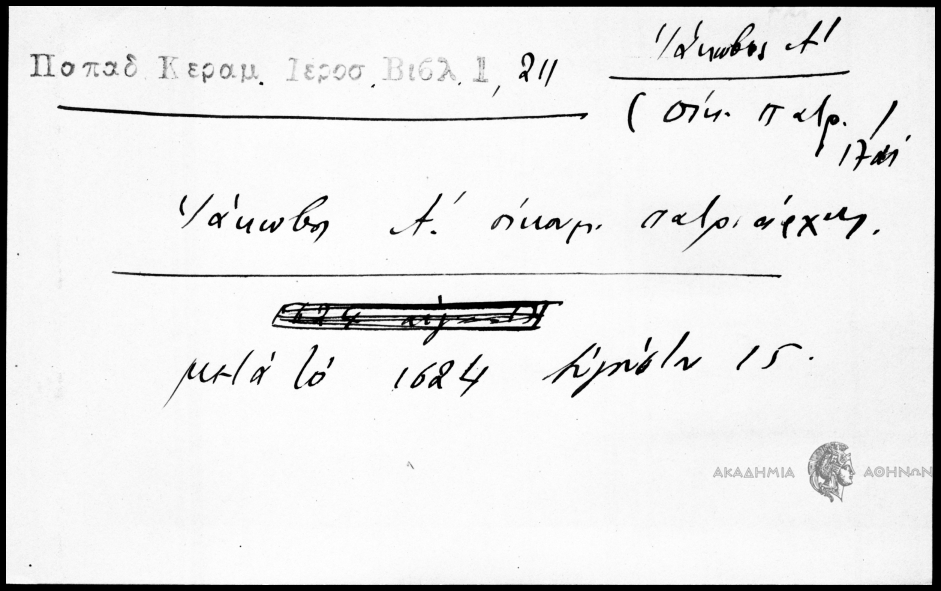 Παπαδ. Κεραμ. Ιεροσ. Βιβλ. 1, 211
Ἰάκωβος Α΄
(οἰκ. πατρ. /
Ἰάκωβος Α΄. οἰκουμ. πατριάρχης.
μετὰ τὸ 1624 Αὐγούστου 15.
ΑΚΑΔΗΜΙΑ ΑΘΗΝΩΝ